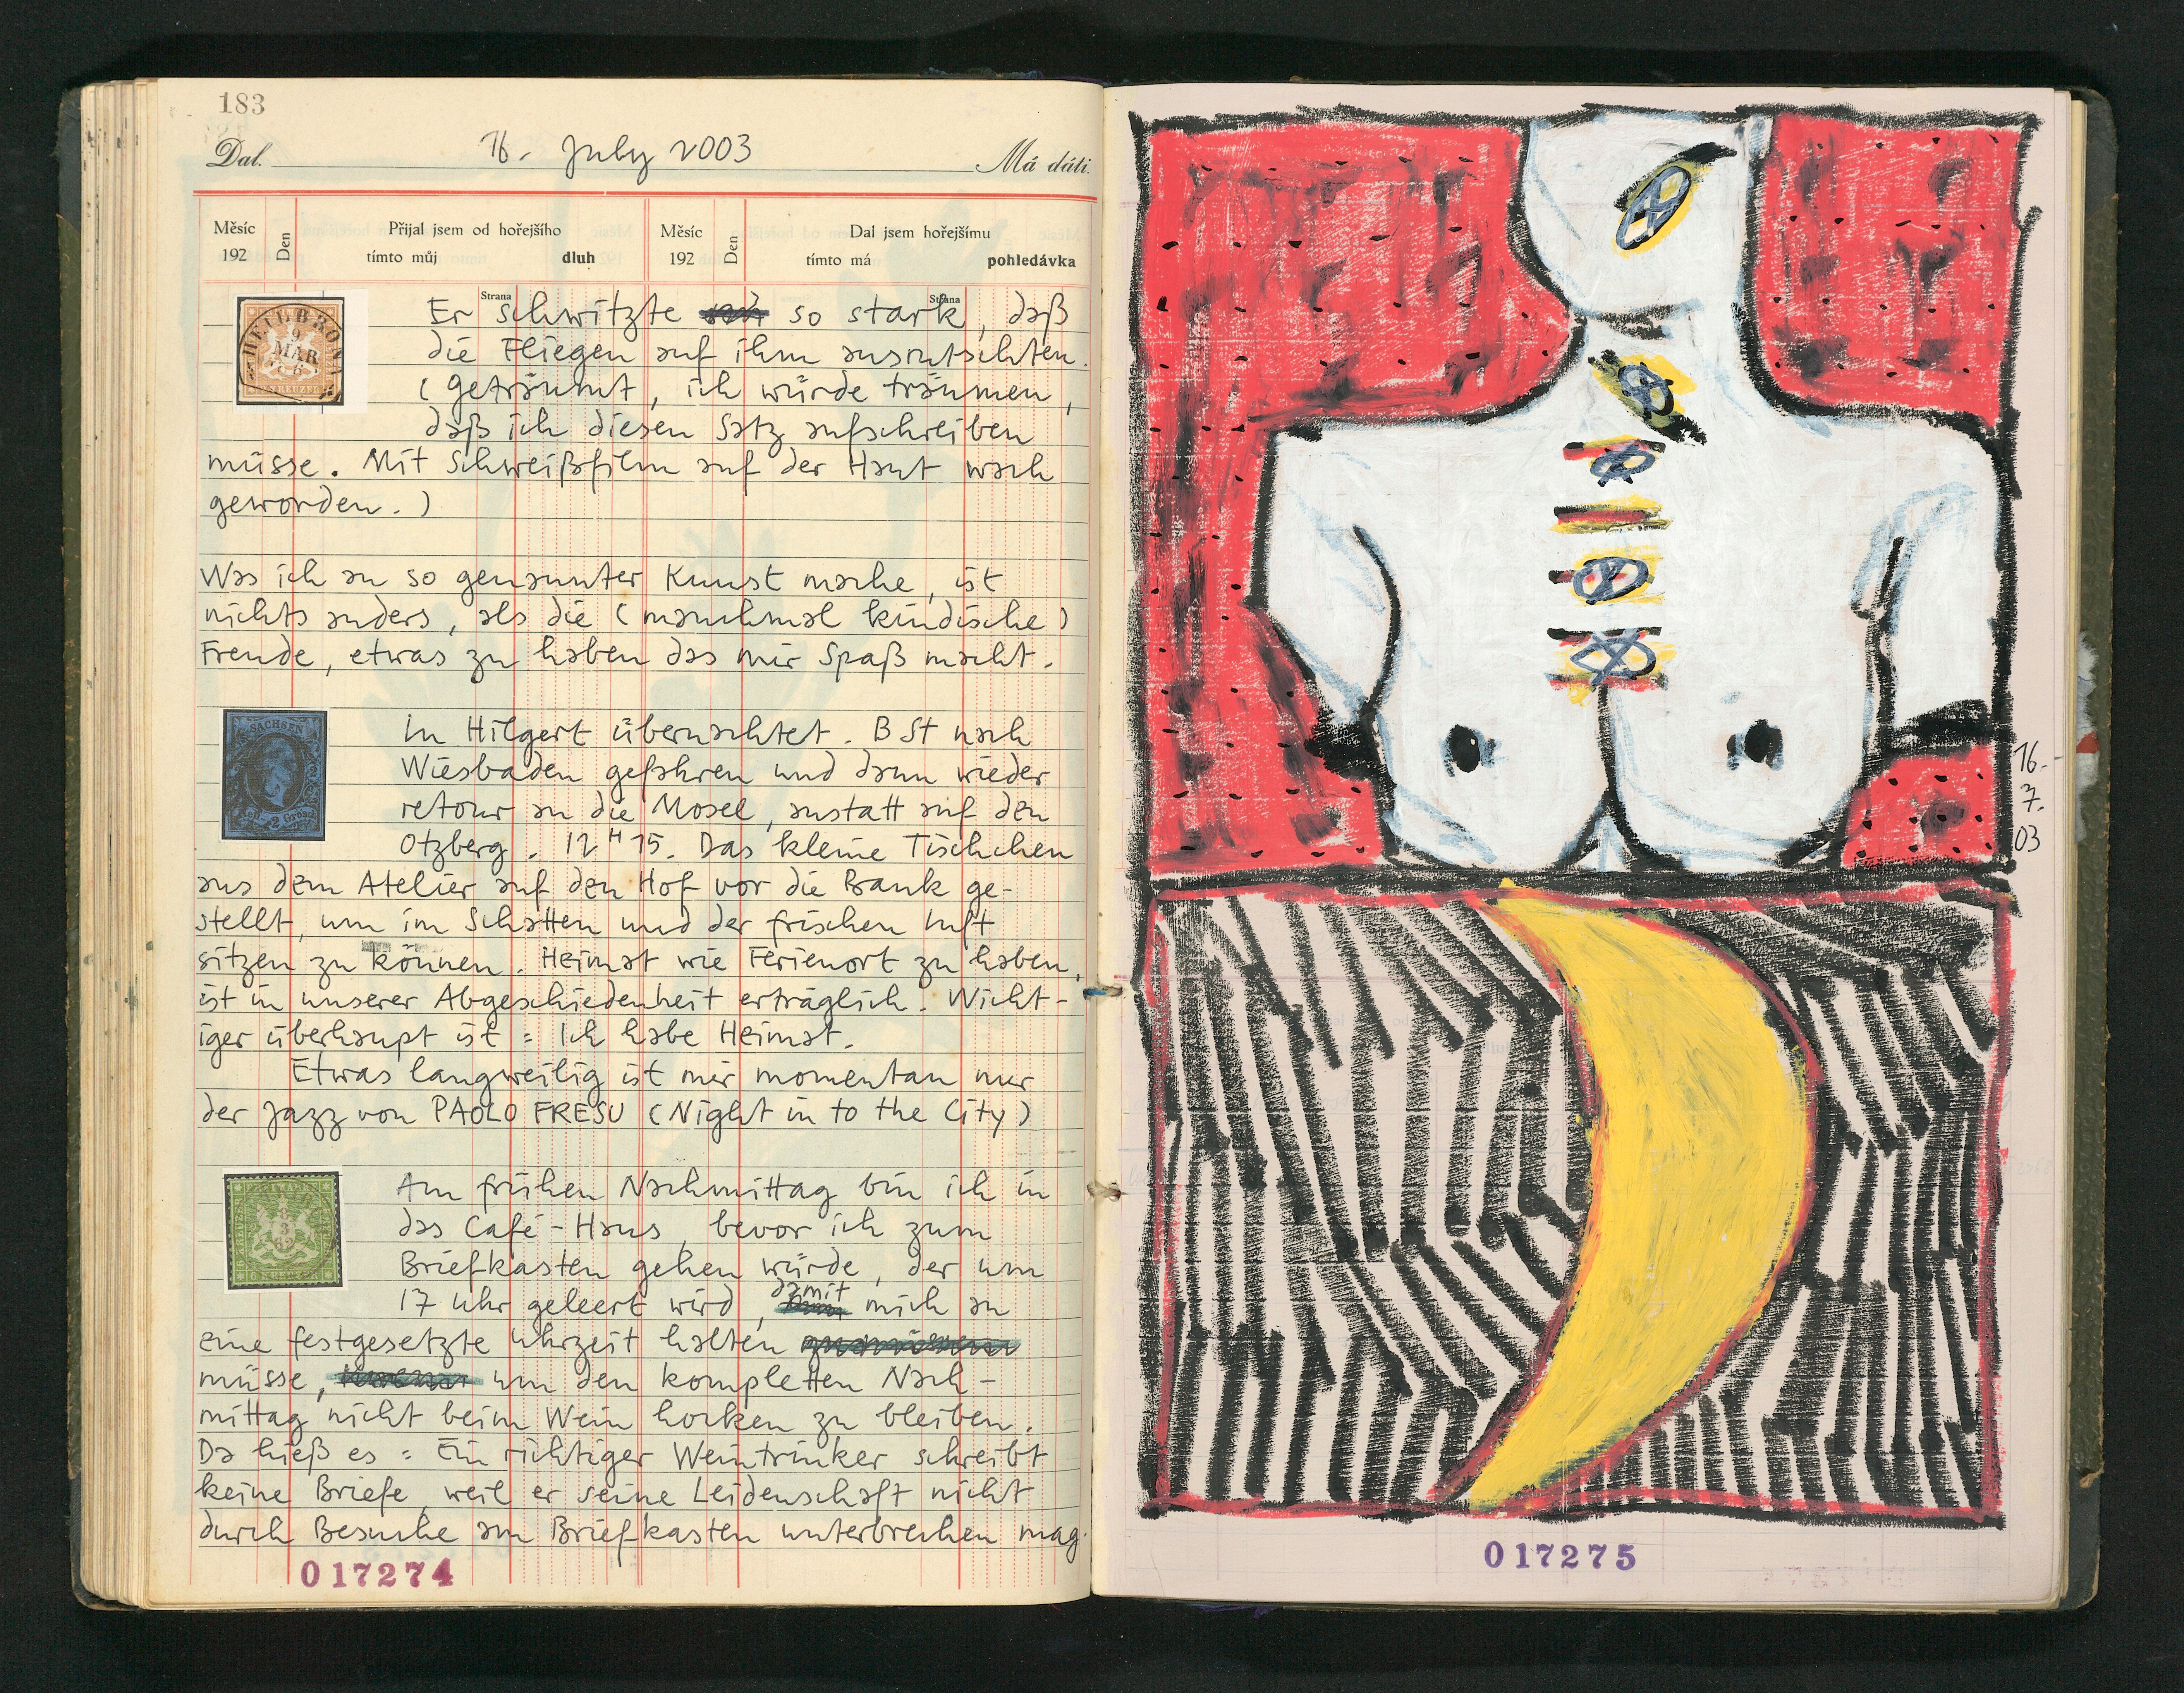 183
Dal. 16. July 2003 Má dáti.
Měsíc 192 Den Přijal jsem od hořejšího tímto můj dluh Měsíc 192 Den Dal jsem hořejšímu tímto má pohledávka
Strana Strana
HEILBRONN
9
MAR
KREUZER
Er schwitzte so stark, daß
die Fliegen auf ihm ausrutschten.
(geträumt, ich würde träumen,
daß ich diesen Satz aufschreiben
müsse. Mit Schweißfilm auf der Haut wach
geworden.)
Was ich an so genannter Kunst mache, ist
nichts anders, als die (manchmal kindische)
Freude, etwas zu haben das mir Spaß macht.
SACHSEN
In Hilgert übernachtet. B St nach
Wiesbaden gefahren und dann wieder
retour an die Mosel, anstatt auf den
Otzberg. 12 H 15. Das kleine Tischchen
aus dem Atelier auf den Hof vor die Bank ge-
stellt, um im Schatten und der frischen Luft
sitzen zu können. Heimat wie Ferienort zu haben,
ist in unserer Abgeschiedenheit erträglich. Wicht-
iger überhaupt ist: Ich habe Heimat.
Etwas langweilig ist mir momentan nur
der Jazz von PAOLO FRESU (Night in to the City)
Am frühen Nachmittag bin ich in
das Café-Haus, bevor ich zum
Briefkasten gehen würde, der um
17 Uhr geleert wird, damit mich an
eine festgesetzte Uhrzeit halten
müsse, um den kompletten Nach-
mittag nicht beim Wein hocken zu bleiben.
Da hieß es: Ein richtiger Weintrinker schreibt
keine Briefe, weil er seine Leidenschaft nicht
durch Besuche am Briefkasten unterbrechen mag.
017274
16.
7.
03
017275